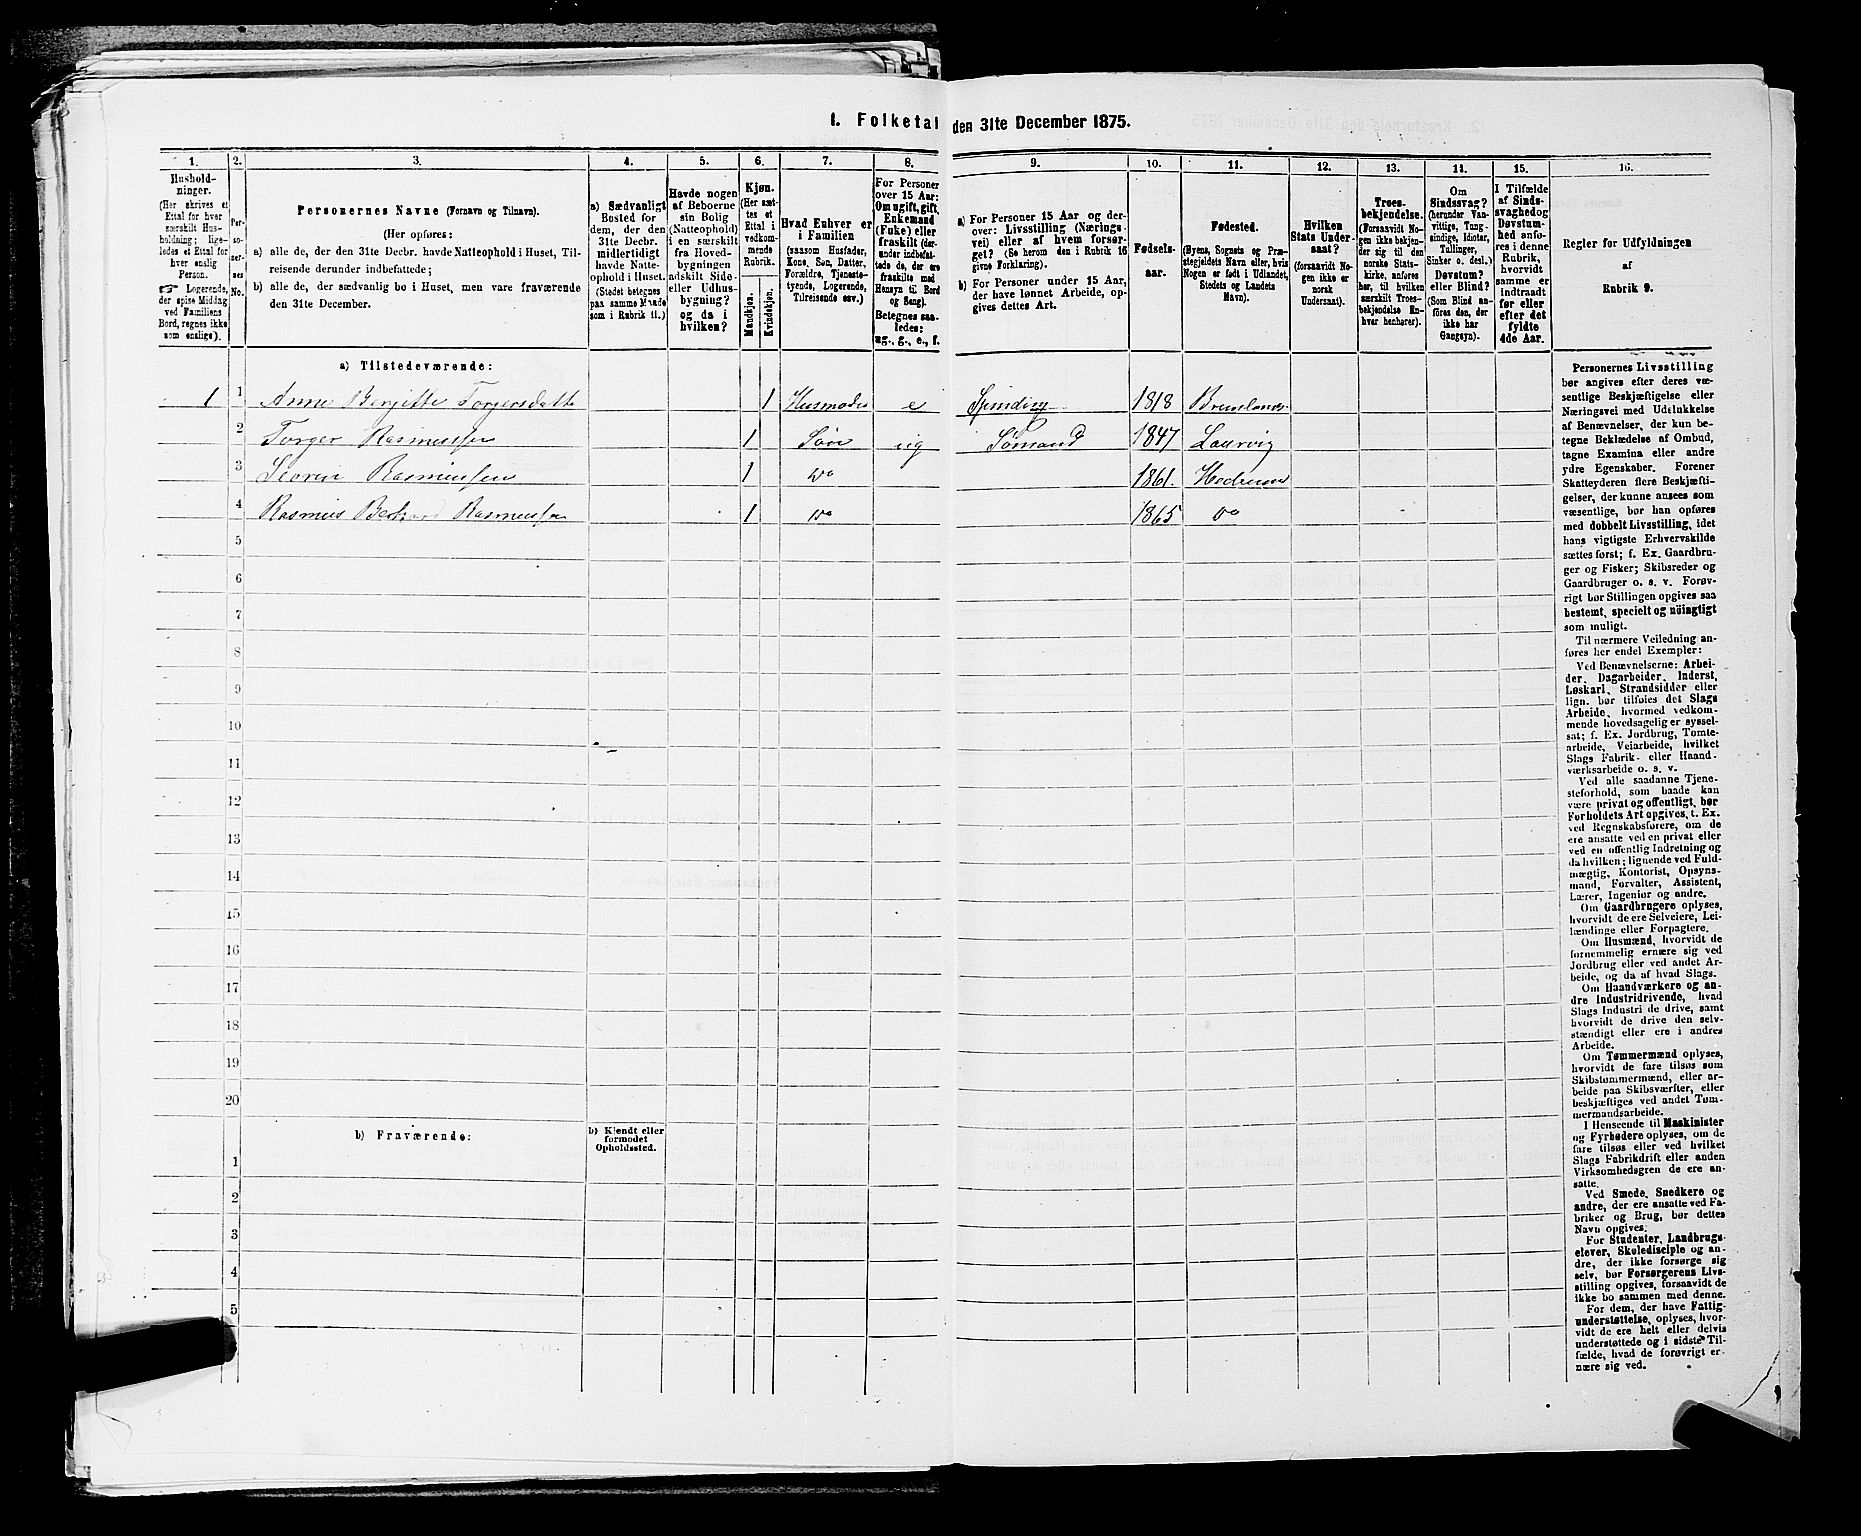 1. Folketal den 31te December 1875.
1. 2. 3. 4. 5. 6. 7. 8. 9. 10. 11. 12. 13. 14. 15. 16.
Hushold-
ninger.
(Her skrives et
Ettal for hver
særskilt Hus-
holdning; lige-
ledes et Ettal for
hver enslig
Person.
☞ Logerende,
der spise Middag
ved Familiens
Bord, regnes ikke
som enslige).
Per-
so-
ner-
nes
No.
Personernes Navne (Fornavn og Tilnavn).
(Her opføres:
a) alle de, der den 31te Decbr. havde Natteophold i Huset, Til-
reisende derunder indbefattede;
b) alle de, der sædvanlig bo i Huset, men vare fraværende
den 31te December.
a) Sædvanligt
Bosted for
dem, der den
31te Decbr.
midlertidigt
havde Natte-
ophold i Huset.
(Stedet betegnes
paa samme Maade
som i Rubrik 11.)
Havde nogen
af Beboerne
sin Bolig
(Natteophold)
i en særskilt
fra Hoved-
bygningen
adskilt Side-
eller Udhus-
bygning?
og da i
hvilken?
Kjøn.
(Her sæt-
tes et
Ettal i
vedkom-
mende
Rubrik.
Mandkjøn.
Kvindekjøn.
Hvad Enhver er
i Familien
(saasom Husfader,
Kone, Søn, Datter,
Forældre, Tjeneste-
tyende, Logerende,
Tilreisende osv.)
For Personer
over 15 Aar:
Om ugift, gift,
Enkemand
(Fuke) eller
fraskilt (der-
under indbefat-
tede de, der ere
fraskilte med
Hensyn til Bord
og Seng).
Betegnes saa-
ledes:
ug., g., e., f.
a) For Personer 15 Aar og der-
over: Livsstilling (Nærings-
vei) eller af hvem forsør-
get? (Se herom den i Rubrik 16
givne Forklaring).
b) For Personer under 15 Aar,
der have lønnet Arbeide, op-
gives dettes Art.
Fødsels-
aar.
Fødested.
(Byens, Sognets og Præ-
stegjeldets Navn eller, hvis
Nogen er født i Udlandet,
Stedets og Landets
Navn).
Hvilken
Stats Under-
saat?
(forsaavidt No-
gen ikke er
norsk
Undersaat).
Troes-
bekjendelse.
(Forsaavidt No-
gen ikke bekjen-
der sig til den
norske Stats-
kirke, anføres
her, til hvilken
særskilt Troes-
bekjendelse En-
hver henhører).
Om
Sindssvag?
(herunder Van-
vittige, Tung-
sindige, Idioter,
Tullinger,
Sinker o. desl.)
Døvstum?
eller Blind?
(Som Blind an-
føres den, der
ikke har
Gangsyn).
I Tilfælde
af Sinds-
svaghed og
Døvstum-
hed anfø-
res i denne
Rubrik,
hvorvidt
samme er
indtraadt
før eller
efter det
fyldte
4de Aar.
Regler for Udfyldningen
af
Rubrik 9.
a) Tilstedeværende:
1 1 Anne Bergitte Torgersdatte 1 Husmoder e 1818
2 Torger Rasmussen 1 Søn ug Sømand 1847 Laurvig
3 Rasmussen 1 do 1861. Hedrum
4 Rasmus Rasmussen 1 do 1865 do
5
6
7
8
9
10
11
12
13
14
15
16
17
18
19
20
b) Fraværende:
b) Kjendt eller
formodet
Opholdssted.
1
2
3
4
5
Personernes Livsstilling
bør angives efter deres væ-
sentlige Beskjæftigelse eller
Næringsvei med Udelukkelse
af Benævnelser, der kun be-
tegne Beklædelse af Ombud,
tagne Examina eller andre
ydre Egenskaber. Forener
Skatteyderen flere Beskjæfti-
gelser, der kunne ansees som
væsentlige, bør han opføres
med dobbelt Livsstilling, idet
hans vigtigste Erhvervskilde
sættes først; f. Ex. Gaardbru-
ger og Fisker; Skibsreder og
Gaardbruger o. s. v. Forøv-
rigt bør Stillingen opgives saa
bestemt, specielt og nöiagtigt
som muligt.
Til nærmere Veiledning an-
føres her endel Exempler:
Ved Benævnelserne: Arbei-
der, Dagarbeider, Inderst,
Løskarl, Strandsidder eller
lign. bør tilføies det Slags
Arbeide, hvormed vedkom-
mende hovedsagelig er syssel-
sat; f. Ex. Jordbrug, Tomte-
arbeide, Veiarbeide, hvilket
Slags Fabrik- eller Haand-
værksarbeide o. s. v.
Ved alle saadanne Tjene-
steforhold, som baade kan
være privat og offentligt, bør
Forholdets Art opgives, t. Ex.
ved Regnskabsførere, om de
ere ansatte ved en privat eller
ved en offentlig Indretning og
da hvilken; lignende ved Fuld-
mægtig, Kontorist, Opsyns-
mand, Forvalter, Assistent,
Lærer, Ingeniør og andre.
Om Gaardbrugere oplyses,
hvorvidt de ere Selveiere, Lei-
lændinge eller Forpagtere.
Om Husmænd, hvorvidt de
fornemmelig ernære sig ved
Jordbrug eller ved andet Ar-
beide, og da af hvad Slags.
Om Haandværkere og an-
dre Industridrivende, hvad
Slags Industri de drive, samt
hvorvidt de drive den selv-
stændigt eller ere i andres
Arbeide.
Om Tømmermænd oplyses,
hvorvidt de fare tilsøs som
Skibstømmermænd, eller ar-
beide paa Skibsværfter, eller
beskjæftiges ved andet Tøm-
mermandsarbeide.
I Henseende til Maskinister
og Fyrbødere oplyses, om de
fare tilsøs eller ved hvilket
Slags Fabrikdrift eller anden
Virksomhedsgren de ere an-
satte.
Ved Smede, Snedkere og
andre, der ere ansatte ved Fa-
briker og Brug, bør dettes
Navn opgives.
For Studenter, Landbrugs-
elever, Skoledisciple og an-
dre, der ikke forsørge sig
selv, bør Forsørgerens Livs-
stilling opgives, forsaavidt de
ikke bo sammen med denne.
For dem, der have Fattig-
understøttelse, oplyses, hvor-
vidt de ere helt eller delvis
understøttede og i sidste Til-
fælde, hvad de forøvrigt er-
nære sig ved.